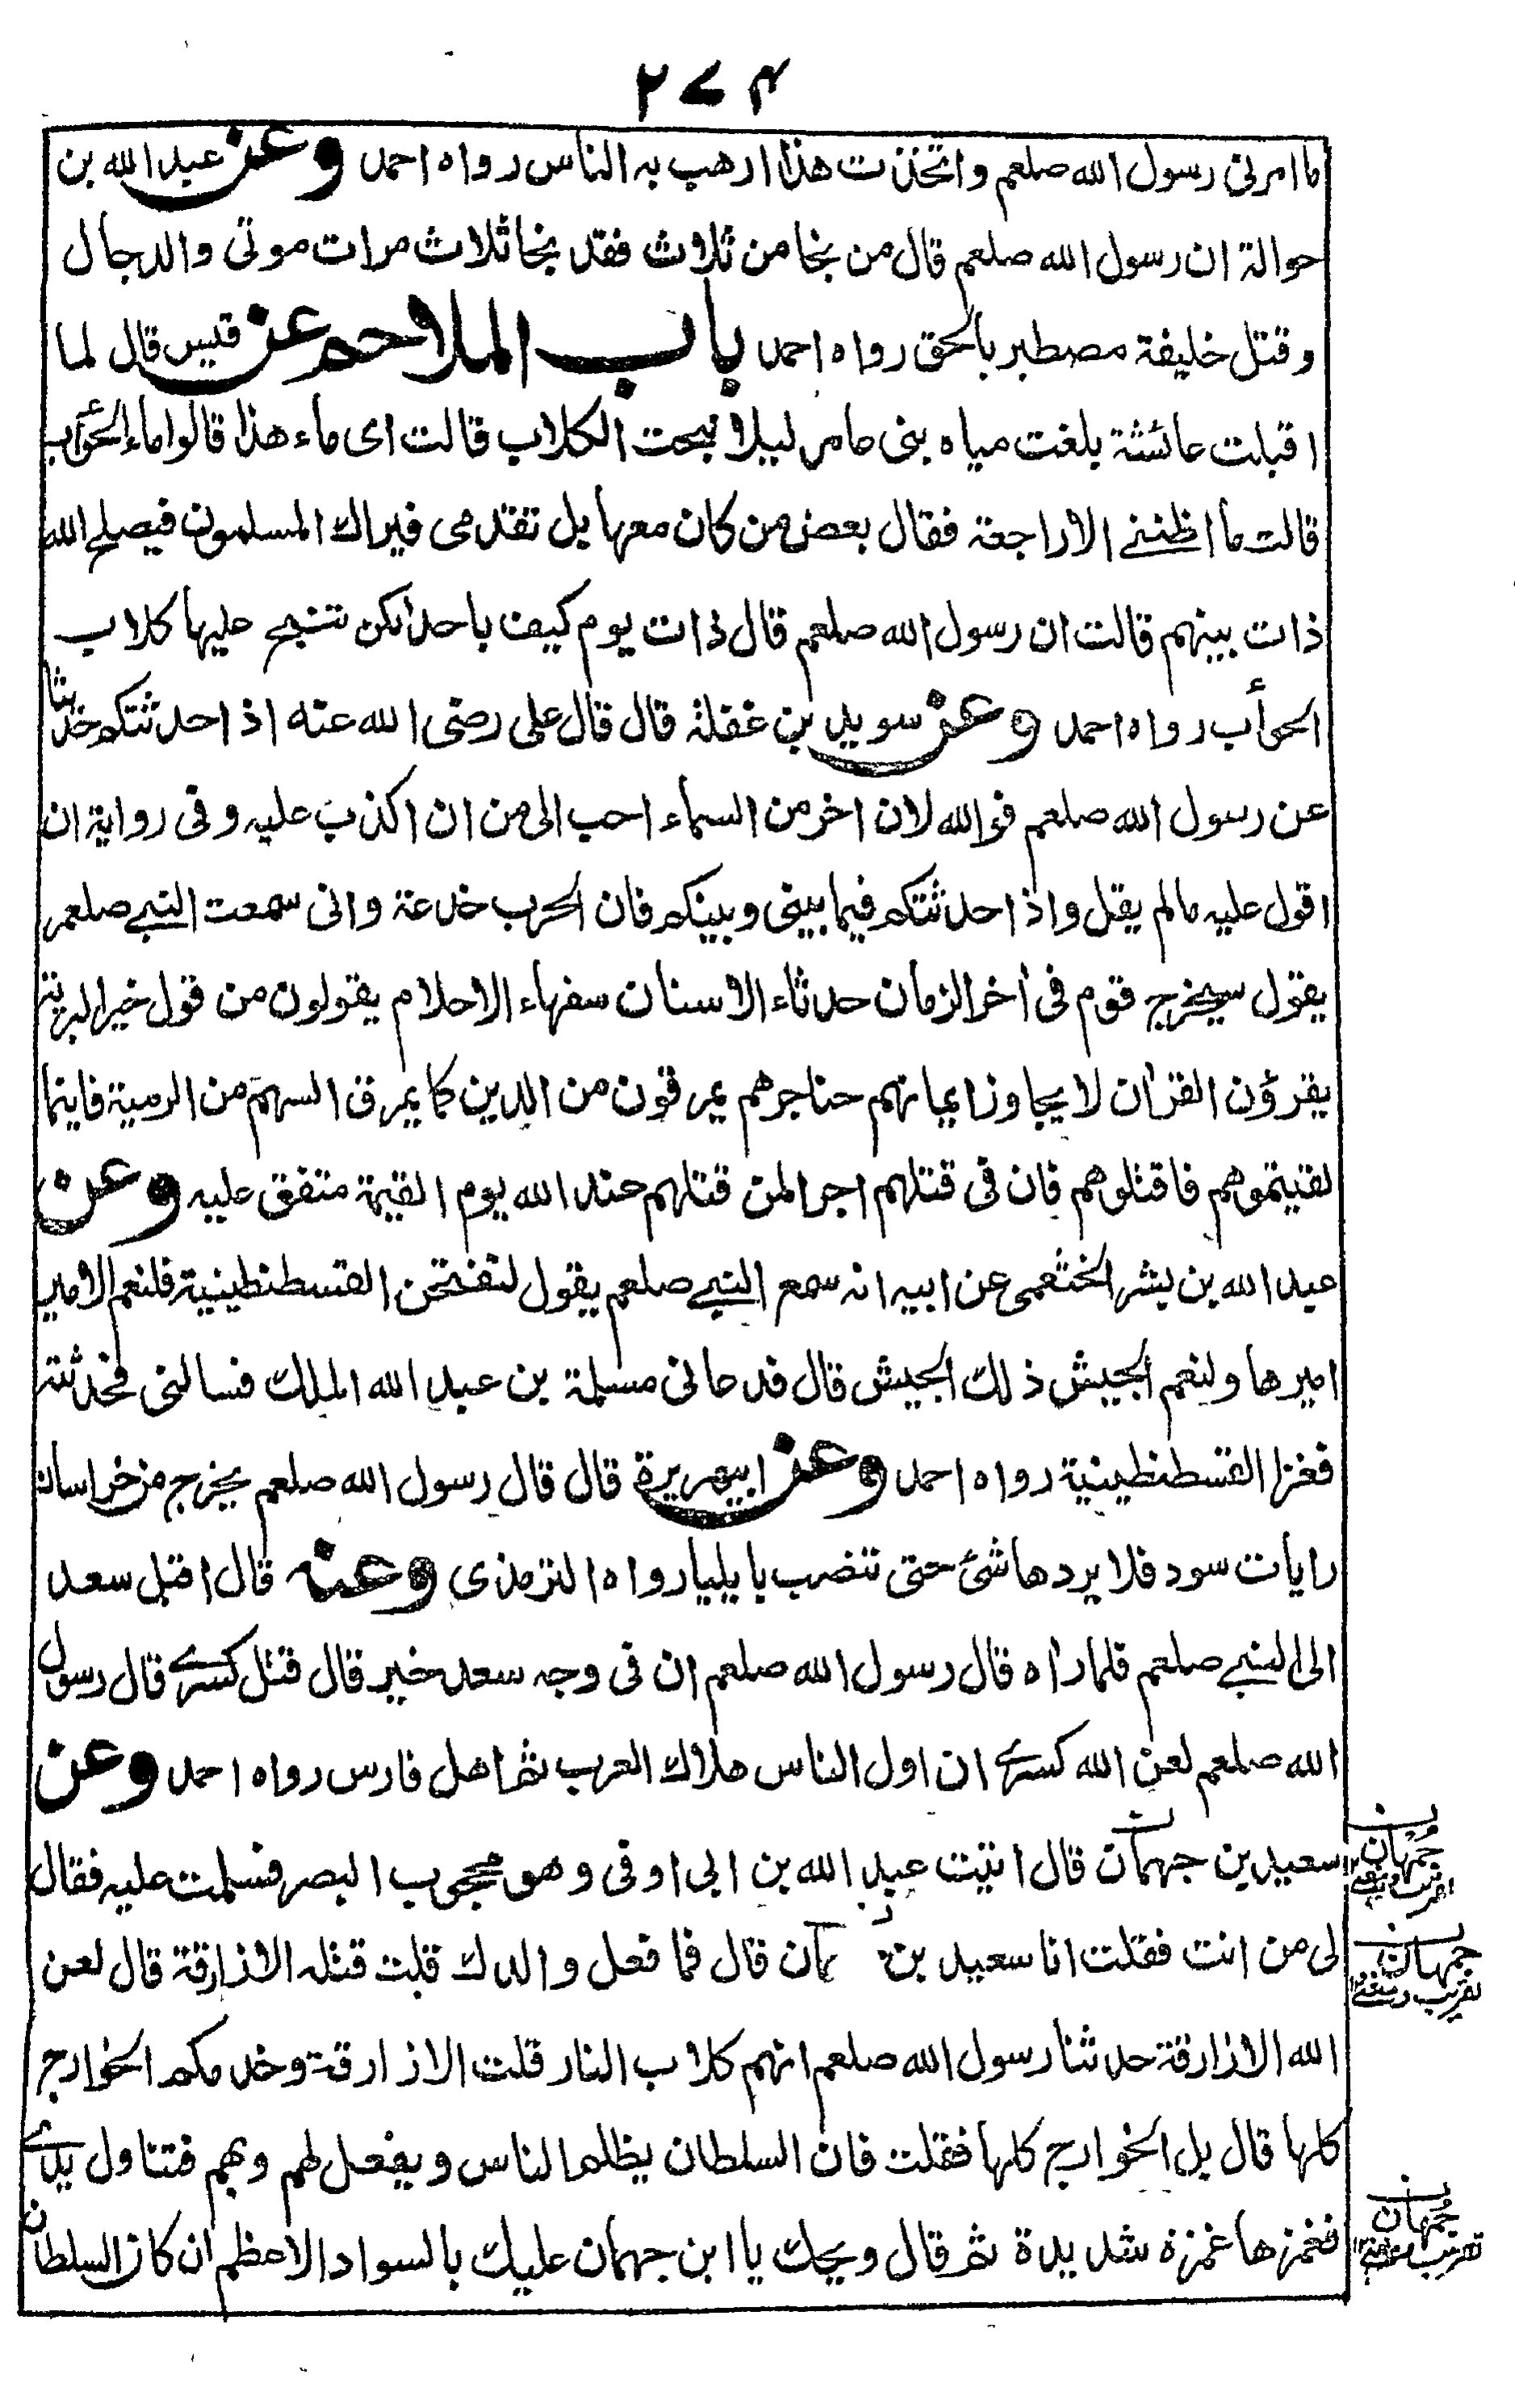 ۲۷۴
ما امرنی رسول الله صلعم واتخذت هذا ارهب به الناس رواه احمد وعن عبد الله بن
حوالة ان رسول الله صلعم قال من نجا من ثلاث فقد نجا ثلاث مرات موتی والدجال
وقتل خلیفة مصطبر بالحق رواه احمد باب الملاحم عن قیس قال لما
اقبلت عائشة بلغت میاه بنی عامر لیلا نبحت الکلاب قالت ای ماء هذا قالوا ماء الحوأب
قالت ما اظننے الا راجعة فقال بعض من کان معها بل تقدمی فیراك المسلمون فیصلح الله
ذات بینهم قالت ان رسول الله صلعم قال ذات یوم کیف باحداکن تنبح علیها کلاب
الحوأب رواه احمد وعن سوید بن غفلة قال قال علی رضی الله عنه اذا حدثتکم حدیثا
عن رسول الله صلعم فوالله لان اخر من السماء احب الی من ان اکذب علیه وفی روایة ان
اقول علیه مالم یقل واذا حدثتکم فیما بینی وبینکم فان الحرب خدعة وانی سمعت النبے صلعم
یقول سیخرج قوم فی اخر الزمان حدثاء الاسنان سفهاء الاحلام یقولون من قول خیر البریة
یقرؤن القران لا یجاوز ایمانهم حناجرهم یمرقون من الدین کما یمرق السهم من الرمیة فاینما
لقیتموهم فاقتلوهم فان فی قتلهم اجر المن قتلهم عند الله یوم القیمة متفق علیه وعن
عبد الله بن بشر الخثعمی عن ابیه انه سمع النبے صلعم یقول لتفتحن القسطنطینیة فلنعم الامیر
امیرها ولنعم الجیش ذلك الجیش قال فدعانی مسلمة بن عبد الله الملك فسالنی فحدثته
فغزا القسطنطینیة رواه احمد وعن ابیهریرة قال قال رسول الله صلعم یخرج من خراسان
رایات سود فلا یردها شئ حتی تنصب بایلیا رواه الترمذی وعنه قال اقبل سعد
الی النبے صلعم فلما راه قال رسول الله صلعم ان فی وجه سعد خیر قال قتل کسرے قال رسول
الله صلعم لعن الله کسرے ان اول الناس هلاك العرب ثم اهل فارس رواه احمد وعن
سعید بن جهمان قال اتیت عبد الله بن ابی اوفی وهو محجوب البصر فسلمت علیه فقال
جمهان
لی من انت فقلت انا سعید بن جهمان قال فما فعل والدك قلت قتله الازارقة قال لعن
جمهان
الله الازارقة حدثنا رسول الله صلعم انهم کلاب النار قلت الازارقة وحدهم ام الخوارج
کلها قال بل الخوارج کلها فقلت فان السلطان یظلم الناس ویفعل لهم وبهم فتناول یدے
فغمزها غمزة شدیدة ثم قال ویحك یا ابن جهمان علیك بالسواد الاعظم ان کان السلطان
جمهان